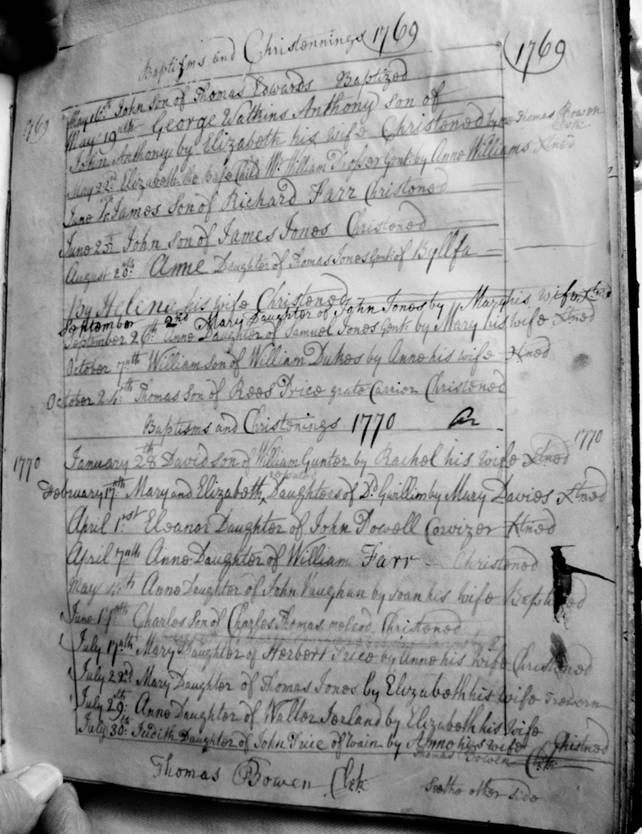 Baptisms and Christennings 1769
1769
1769
May 16th John son of Thomas Edwards Baptized
May 19th George Watkins Anthony son of
John Anthony by Elizabeth his wife Christened Thomas Bowen
Clerk
May 22d Elizabeth Wm William Prosser Gent by Anne Williams Xtned
June James Son of Richard Farr Christened
June 25th John Son of James Jones Christened
August 20th Anne Daughter of Thomas Jones Gent of
By Helene his wife Christened
September 23d Mary Daughter of John Jones by Mary his wife Xtned
September 26th Anne Daughter of Samuel Jones Gent by Mary his wife Xtned
October 7th William son of William Dukes by Anne his wife Xtned
October 24th Thomas Son of Rees Price Carrior Christened
Baptisms and Christenings 1770
1770
1770
January 28th David son of William Gunter by Rachel his wife Xtned
February 17th Mary and Elizabeth Daughters of D. Gwillim by Mary Davies Xtned
April 1st Eleanor Daughter of John Powell Corvizer Xtned
April 7th Anne Daughter of William Farr Christened
May Anne Daughter of John Vaughan by Joan his wife Baptized
June 17th Charles Son of Charles Thomas Christened
July 17th Mary Daughter of Herbert Price by Anne his wife Christened
July 22d Mary Daughter of Thomas Jones by Elizabeth his wife
July 29th Anne Daughter of Walter by Elizabeth his Wife
July 30th Judith Daughter of John Price of by his wife Christned
Thomas Bowen Clerk
Thomas Bowen Clerk
other side